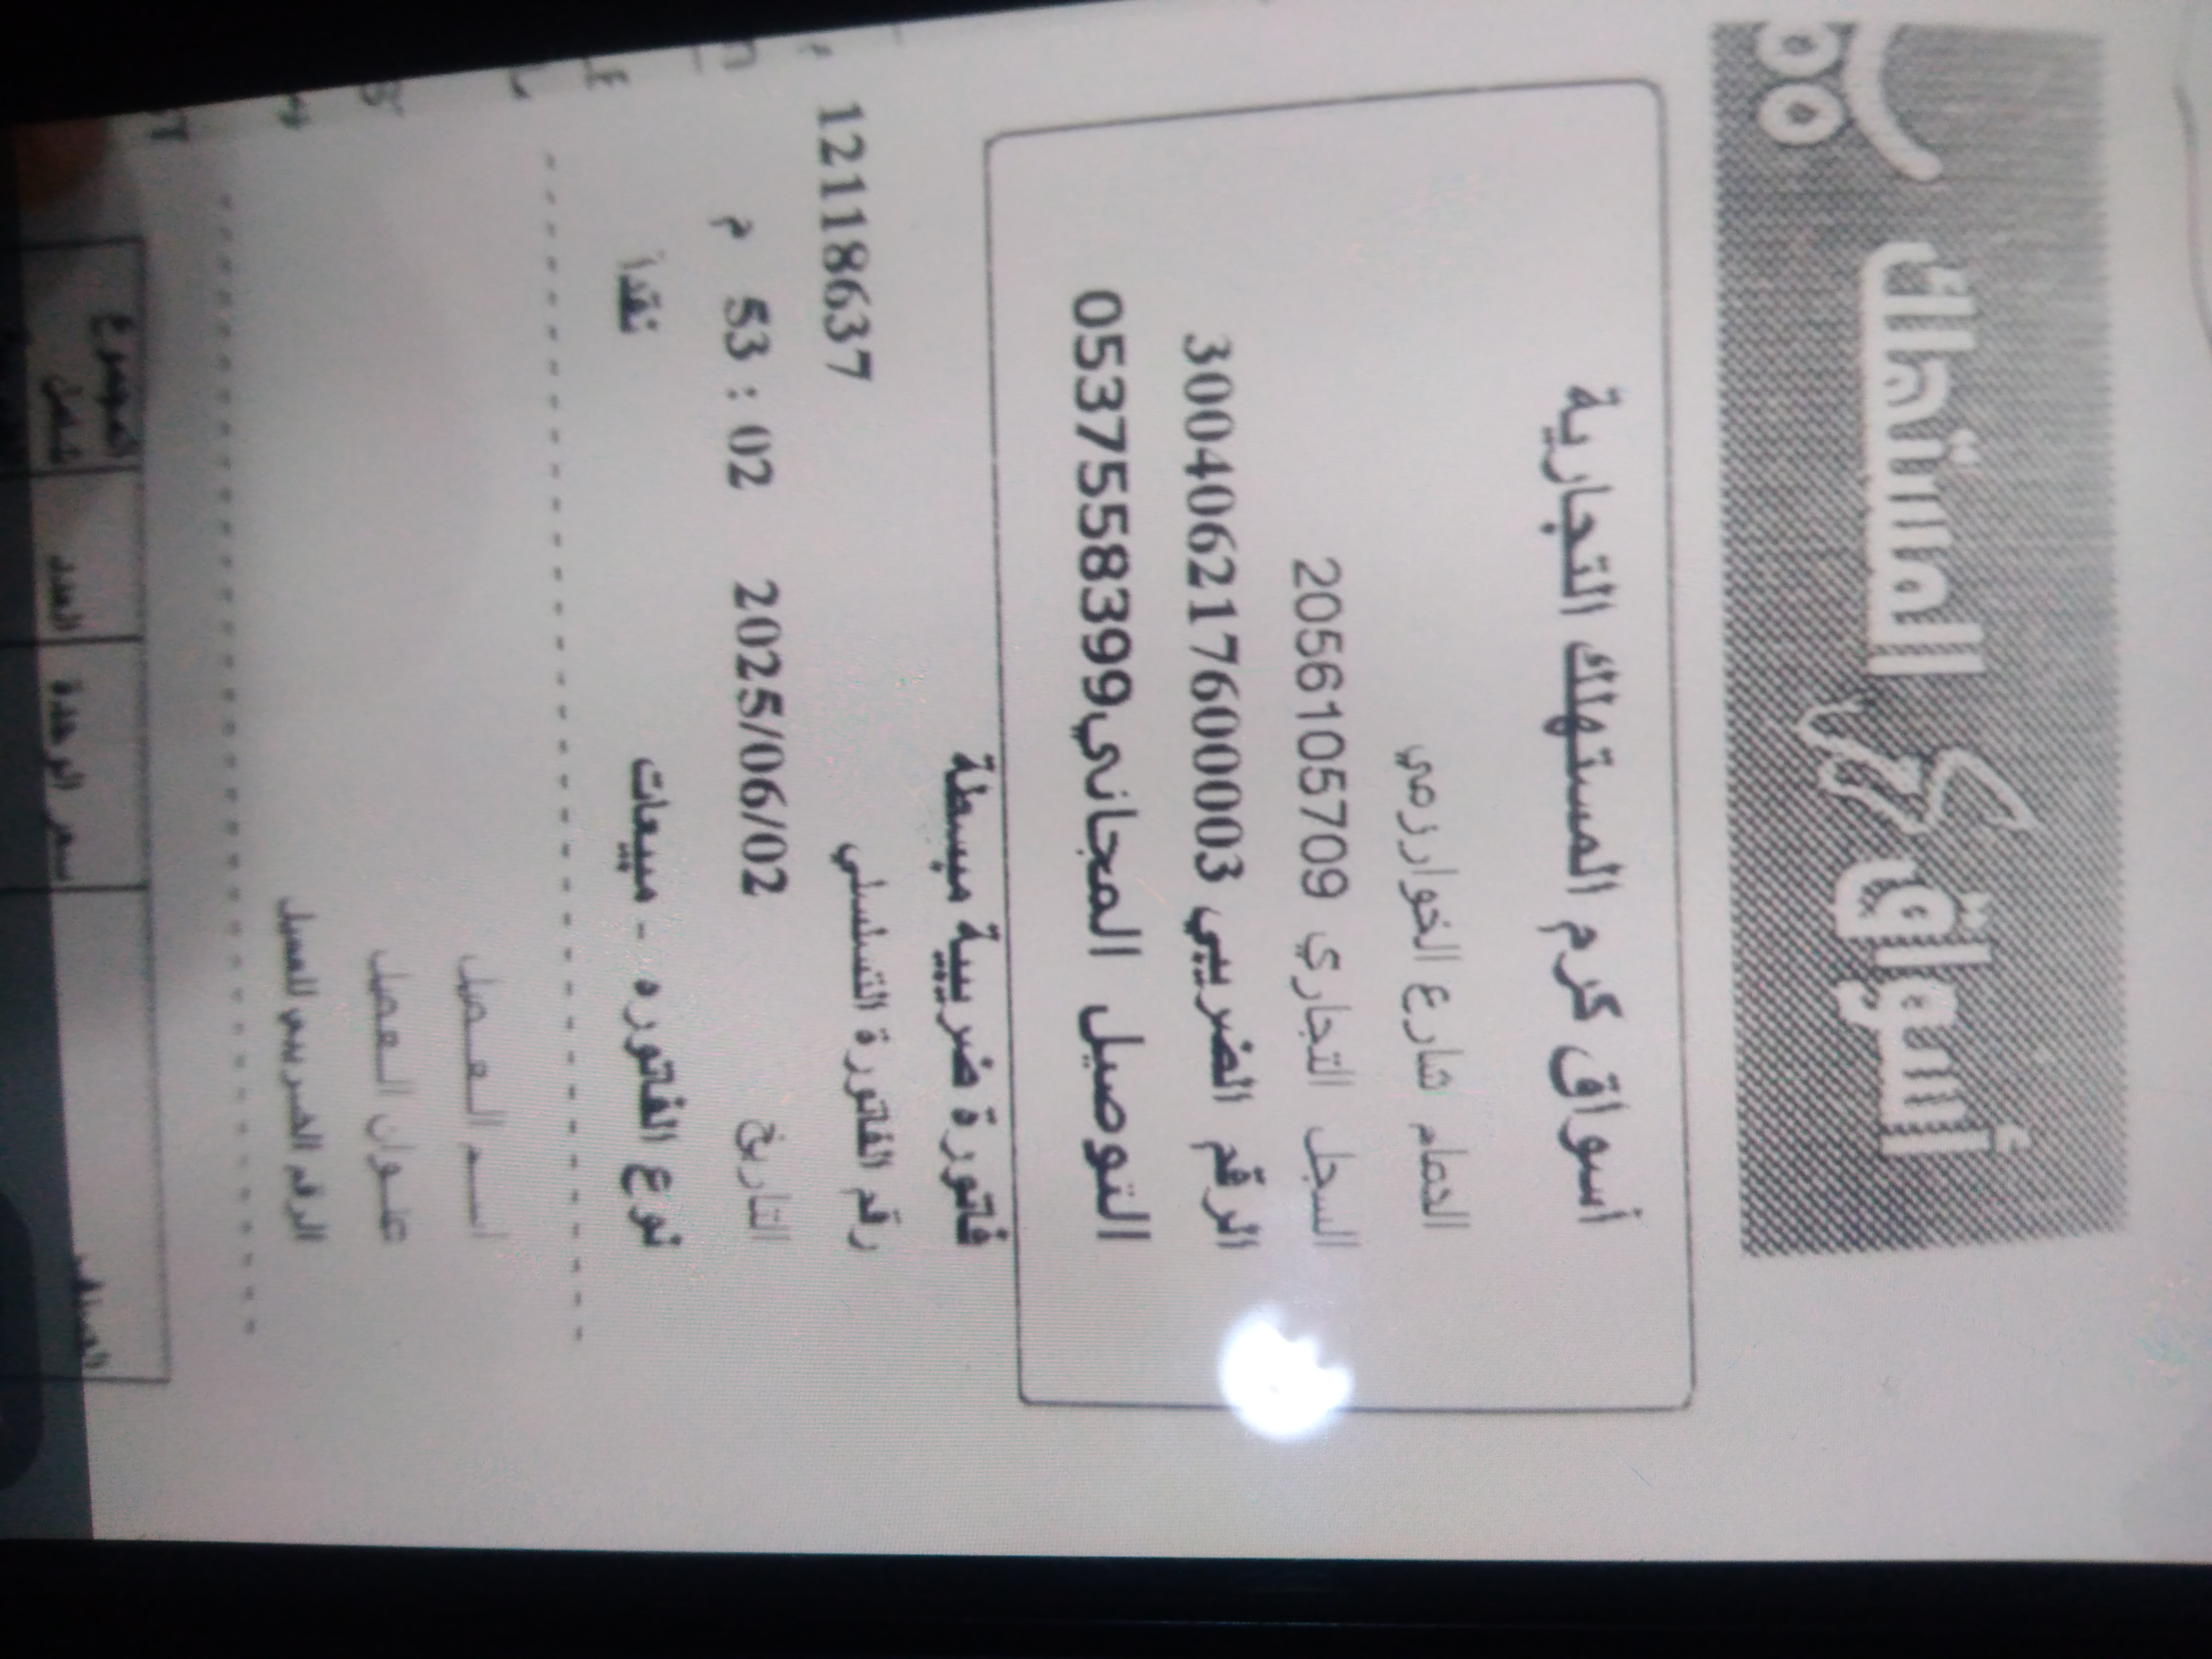 أسواق كرم المستهلك
أسواق كرم المستهلك التجارية
الحمام شارع الخوارزمي
السجل التجاري 2056105709
الرقم الضريبي 300406217600003
التوصيل المجاني0537558399
فاتورة ضريبية مبسطة
رقم الفاتورة التسلسلي 12118637
التاريخ 2025/06/02 02 : 53 م
نوع الفاتوره - مبيعات نقدا
اسم العميل
عنوان العميل
الرقم الضريبي للعميل
سعر الوحدة العدد المجموع